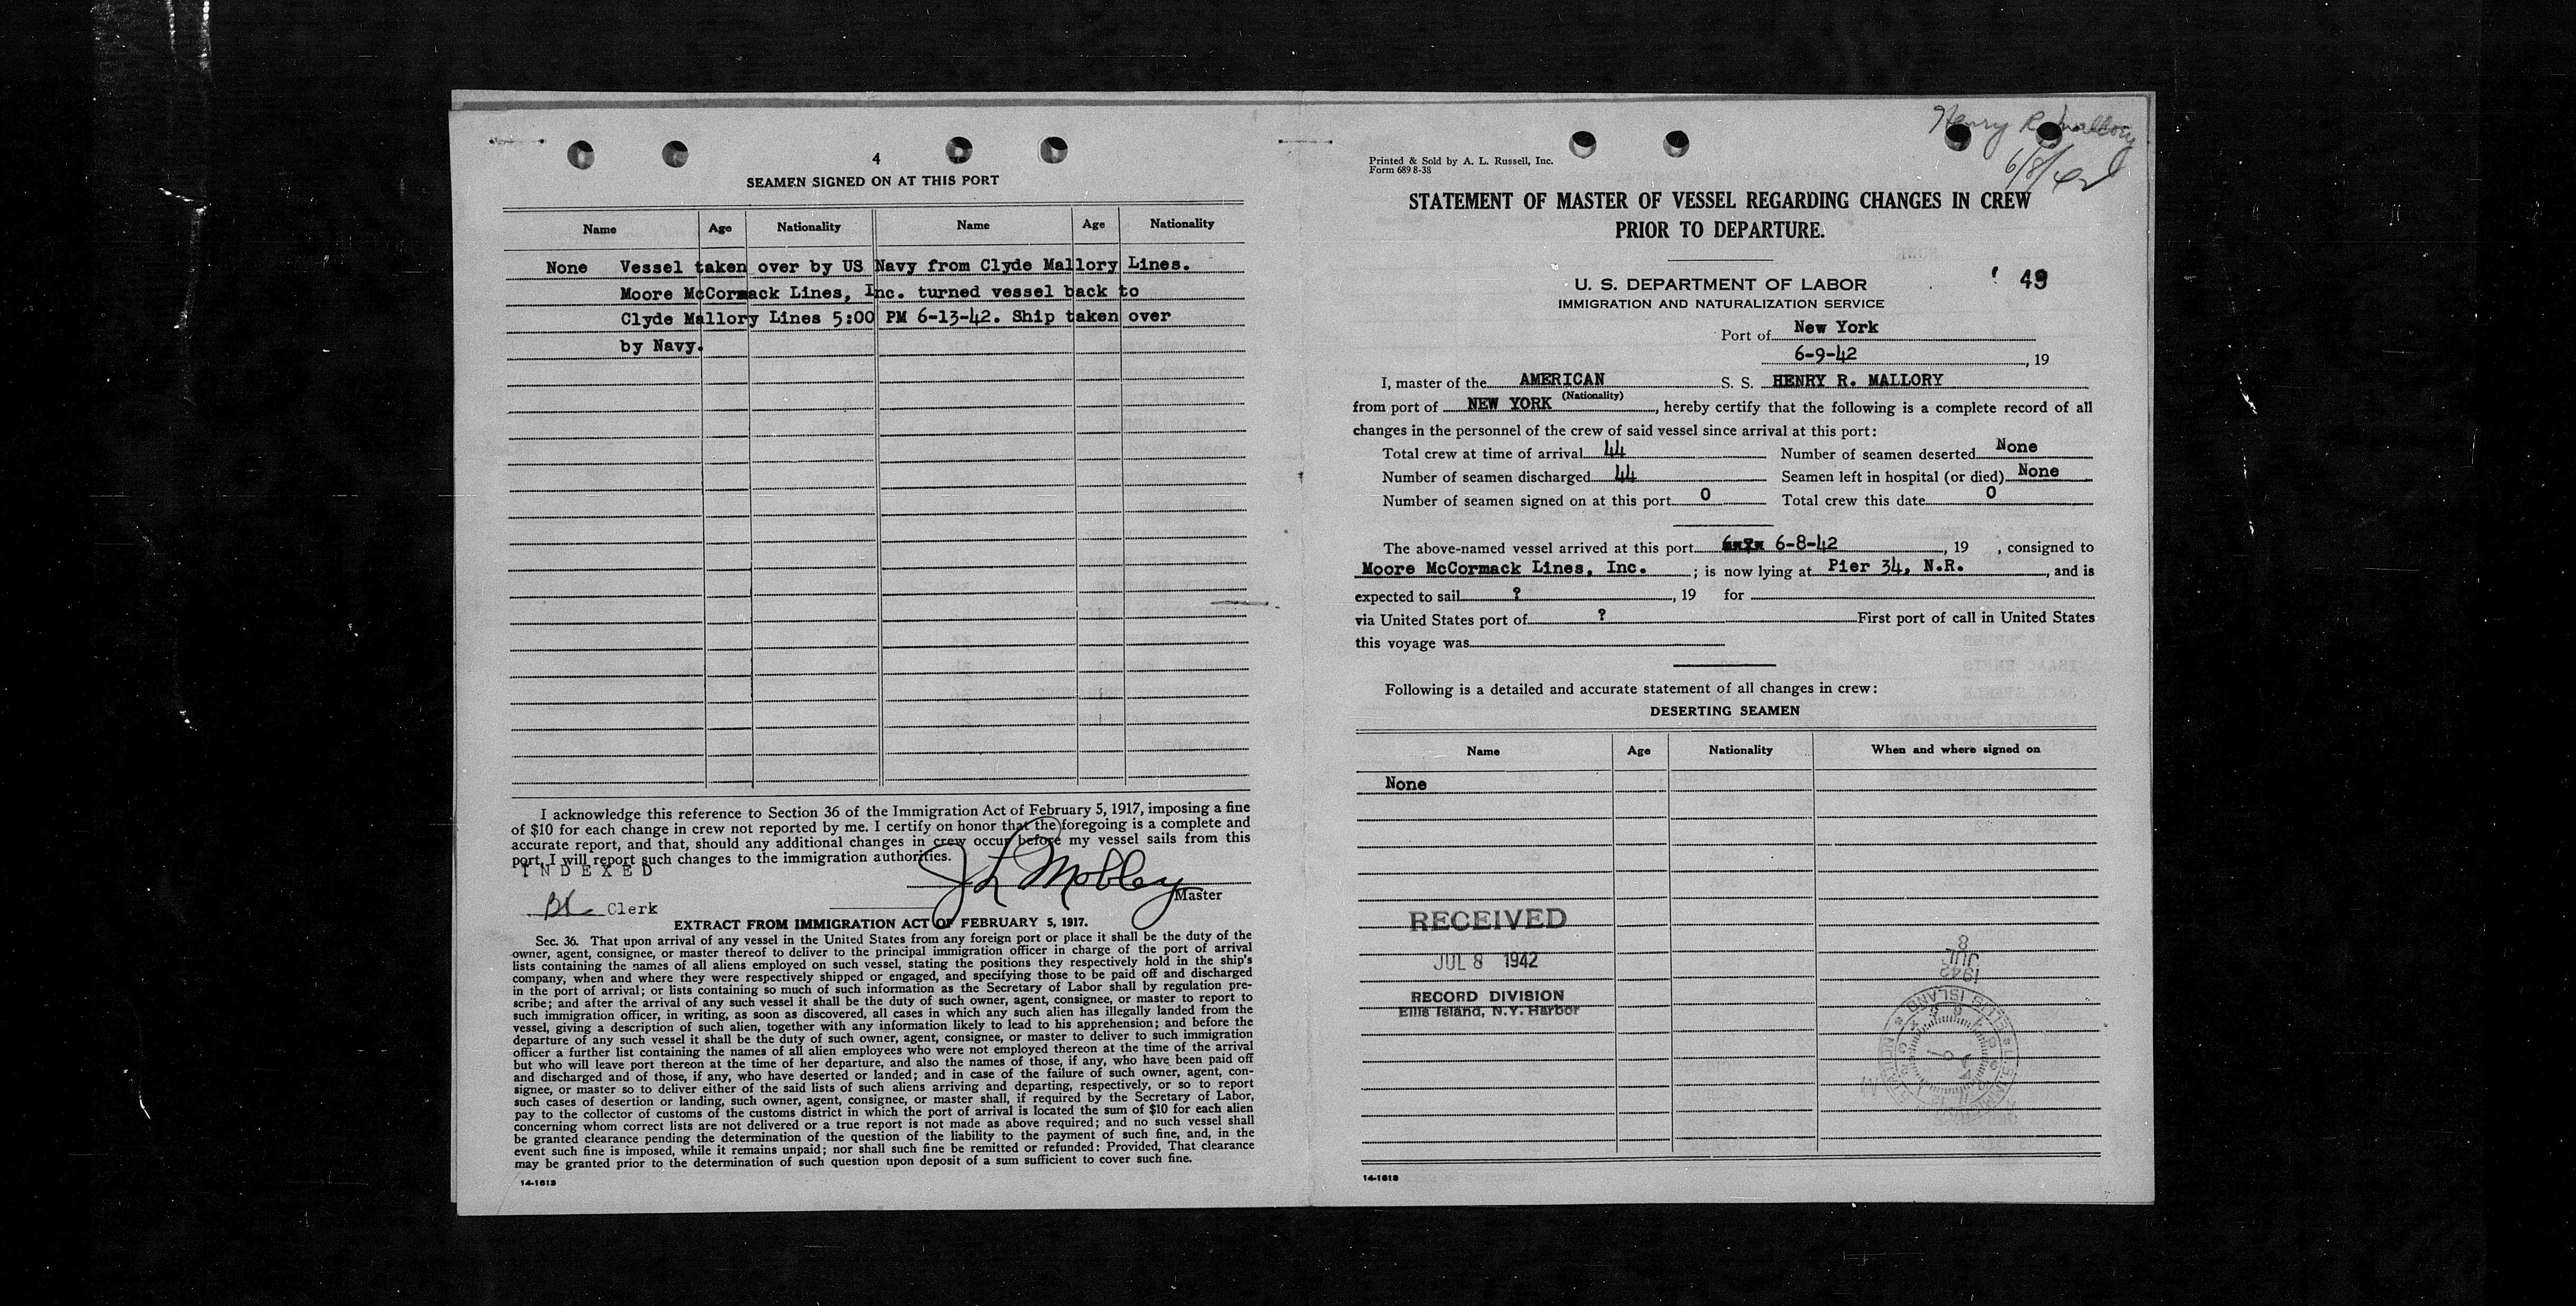 4
SEAMEN SIGNED ON AT THIS PORT
Name Age Nationality Name Age Nationality
None Vessel taken over by US Navy from Clyde Mallory Lines.
Moore McCormack Lines, Inc. turned vessel back to
Clyde Mallory Lines 5:00 PM 6-13-42. Ship taken over
by Navy.
I acknowledge this reference to Section 36 of the Immigration Act of February 5, 1917, imposing a fine
of $10 for each change in crew not reported by me. I certify on honor that the foregoing is a complete and
accurate report, and that, should any additional changes in crew occur before my vessel sails from this
port, I will report such changes to the immigration authorities.
INDEXED
J L Mobley
Master
Clerk
EXTRACT FROM IMMIGRATION ACT OF FEBRUARY 5, 1917.
Sec. 36. That upon arrival of any vessel in the United States from any foreign port or place it shall be the duty of the
owner, agent, consignee, or master thereof to deliver to the principal immigration officer in charge of the port of arrival
lists containing the names of all aliens employed on such vessel, stating the positions they respectively hold in the ship's
company, when and where they were respectively shipped or engaged, and specifying those to be paid off and discharged
in the port of arrival; or lists containing so much of such information as the Secretary of Labor shall by regulation pre-
scribe; and after the arrival of any such vessel it shall be the duty of such owner, agent, consignee, or master to report to
such immigration officer, in writing, as soon as discovered, all cases in which any such alien has illegally landed from the
vessel, giving a description of such alien, together with any information likely to lead to his apprehension; and before the
departure of any such vessel it shall be the duty of such owner, agent, consignee, or master to deliver to such immigration
officer a further list containing the names of all alien employees who were not employed thereon at the time of the arrival
but who will leave port thereon at the time of her departure, and also the names of those, if any, who have been paid off
and discharged and of those, if any, who have deserted or landed; and in case of the failure of such owner, agent, con-
signee, or master so to deliver either of the said lists of such aliens arriving and departing, respectively, or so to report
such cases of desertion or landing, such owner, agent, consignee, or master shall, if required by the Secretary of Labor,
pay to the collector of customs of the customs district in which the port of arrival is located the sum of $10 for each alien
concerning whom correct lists are not delivered or a true report is not made as above required; and no such vessel shall
be granted clearance pending the determination of the question of the liability to the payment of such fine, and, in the
event such fine is imposed, while it remains unpaid; nor shall such fine be remitted or refunded: Provided, That clearance
may be granted prior to the determination of such question upon deposit of a sum sufficient to cover such fine.
14-1613
Henry R. Mallory
6/8/42
Printed & Sold by A. L. Russell, Inc.
Form 689 8-38
STATEMENT OF MASTER OF VESSEL REGARDING CHANGES IN CREW
PRIOR TO DEPARTURE.
U. S. DEPARTMENT OF LABOR
49
IMMIGRATION AND NATURALIZATION SERVICE
Port of New York
6-9-42, 19
I, master of the AMERICAN S. S. HENRY R. MALLORY
(Nationality)
from port of NEW YORK, hereby certify that the following is a complete record of all
changes in the personnel of the crew of said vessel since arrival at this port:
Total crew at time of arrival 44 Number of seamen deserted None
Number of seamen discharged 44 Seamen left in hospital (or died) None
Number of seamen signed on at this port 0 Total crew this date 0
The above-named vessel arrived at this port 6-8-42, 19 , consigned to
Moore McCormack Lines, Inc. ; is now lying at Pier 34, N.R., and is
expected to sail ?, 19 for
via United States port of ? First port of call in United States
this voyage was
Following is a detailed and accurate statement of all changes in crew:
DESERTING SEAMEN
Name Age Nationality When and where signed on
None
RECEIVED
JUL 8 1942
RECORD DIVISION
Ellis Island, N.Y. Harbor
8
JUL
1942
ELLIS ISLAND
14-1613